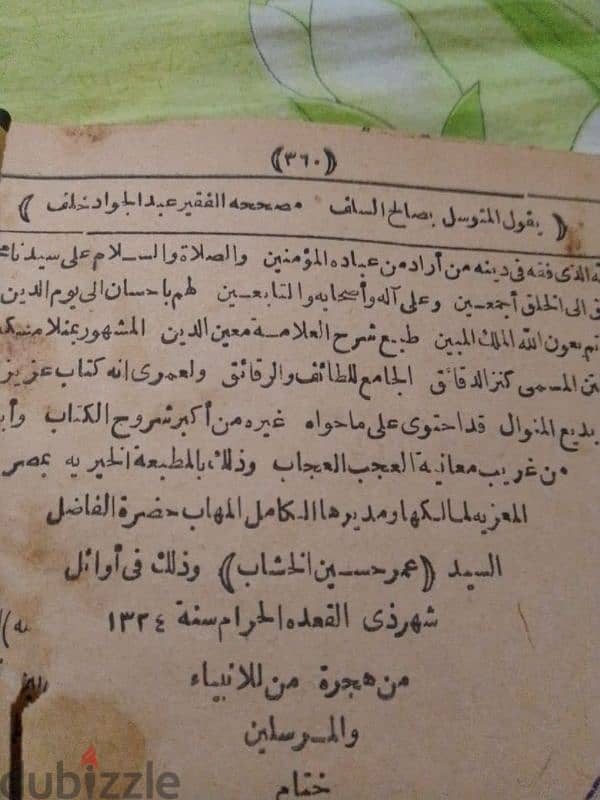 ﴿٣٦٠﴾
﴿ يقول المتوسل بصالح السلف مصححه الفقير عبد الجواد خلف ﴾
الذى فقه فى دينه من أراد من عباده المؤمنين والصلاة والسلام على سيدنا
الى الخلق أجمعين وعلى آله وأصحابه والتابعين لهم باحسان الى يوم الدين
تم بعون الله الملك المبين طبع شرح العلامة معين الدين المشهور بمنلا مسكين
المسمى كنز الدقائق الجامع للطائف والرقائق ولعمرى انه كتاب عزيز
بديع المنوال قد احتوى على ما حواه غيره من أكبر شروح الكتاب
من غريب معانيه العجب العجاب وذلك بالمطبعه الخيريه بمصر
المعزيه لمالكها ومديرها الكامل المهاب حضرة الفاضل
السيد ﴿عمر حسين الخشاب﴾ وذلك فى أوائل
شهر ذى القعده الحرام سنة ١٣٢٤
من هجرة من للانبياء
والمرسلين
ختام
dubizzle